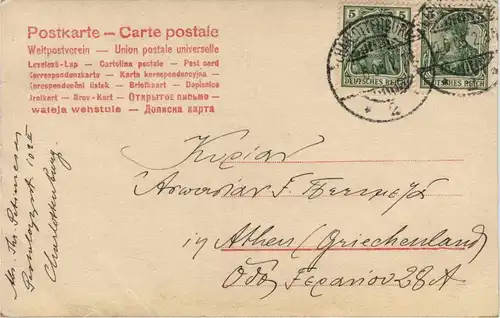 Postkarte – Carte postale
Weltpostverein – Union postale universelle
Levelező-Lap – Cartolina postale – Post card
Korrespondenzkarte – Karta korespondencyjna –
Korespondenční lístek – Briefkaart – Dopisnice
Brefkort – Brev-Kort – Открытое письмо –
waleja wehstule – Дописна карта
5
5
DEUTSCHES REICH
DEUTSCHES REICH
CHARLOTTENBURG
* 2
Κυρίαν
F.
in Athen (Griechenland)
Οδός Γερανίου 28 A
Charlottenburg